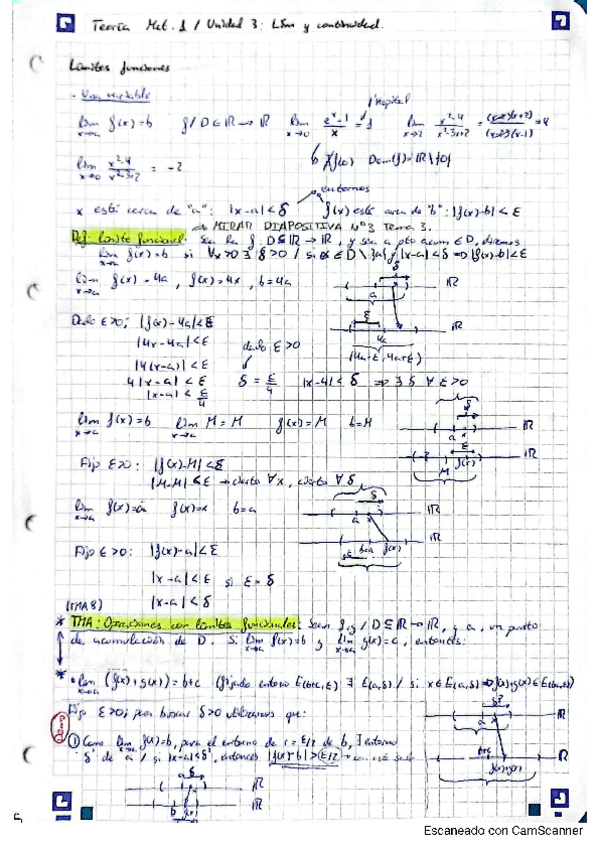 Teoría Mat. 1 / Unidad 3: Lím y continuidad.
Límites funciones
- Una variable
l'Hopital
lim x→a f(x) = b   f / D ⊆ ℝ → ℝ   lim x→0 (eˣ-1)/x = 1   lim x→2 (x²-4)/(x²-3x+2) = (x-2)(x+2)/(x-2)(x-1) = 4
∄f(0)   Dom(f) = ℝ\{0}
lim x→0 (x²-4)/(x²-3x+2) = -2
entornos
x está cerca de "a": |x-a| < δ   f(x) está cerca de "b": |f(x)-b| < ε
MIRAR DIAPOSITIVA Nº3 Tema 3.
Def: Límite funcional: Sea la f: D ⊆ ℝ → ℝ, y sea a pto acum ∈ D, diremos
lim x→a f(x) = b si
|f(x)-b| < ε
δ
lim x→a f(x) = 4a, f(x) = 4x, b = 4a
a   ℝ
ε
4a   ℝ
(4a-ε, 4a+ε)
Dado ε>0; |f(x)-4a| < ε
|4x-4a| < ε   dado ε>0
|4(x-a)| < ε
4|x-a| < ε   δ = ε/4   |x-4| < δ ⇒ ∃ δ ∀ ε>0
|x-a| < ε/4
lim x→a f(x) = b   lim x→a M = M   f(x) = M   b = M
δ
a x   ℝ
ε
M f(x)   ℝ
Fijo ε>0: |f(x)-M| < ε
|M-M| ≤ ε → cierto ∀x, cierto ∀δ
lim x→a f(x) = a   f(x) = x   b = a
δ
a x   ℝ
b=a f(x)   ℝ
Fijo ε>0: |f(x)-a| < ε
|x-a| < ε si ε = δ
|x-a| < δ
(TMA 8)
* TMA: Operaciones con límites funcionales: Sean f, g / D ⊆ ℝ → ℝ, y a, un punto
de acumulación de D. Si lim x→a f(x) = b y lim x→a g(x) = c, entonces:
* • lim x→a (f(x)+g(x)) = b+c (fijado entorno E(b+c, ε) ∃ E(a,δ) / si x ∈ E(a,δ) ⇒ f(x)+g(x) ∈ E(b+c,ε)
Fijo ε>0; para buscar δ>0 utilizamos que:
δ?
a x   ℝ
b+c   f(x)+g(x)   ℝ
① Como lim x→a f(x) = b, para el entorno de r = ε/2 de b, ∃ entorno
δ' de "a" / si |x-a| < δ', entonces |f(x)-b| > ε/2
a δ
ℝ
b f(x)   ℝ
Escaneado con CamScanner